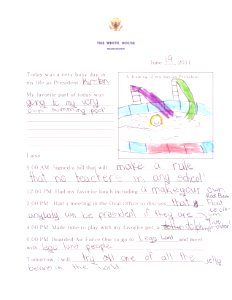 THE WHITE HOUSE
June 9, 2011
Today was a very busy day in
my life as President
My favorite part of today was
going to my very
own swimming pool
A drawing of me being President
I also
9:00 AM Signed a bill that will make a rule
that no teachers in any school
12:00 PM Had my favorite lunch including a make your own
2:00 PM Had a meeting in the Oval Office to discuss that
anybody can be president if they are
4:00 PM Made time to play with my favorite pet a
6:00 PM Boarded Air Force One to go to Lego land and meet
with lego land people
Tomorrow, I will try all one of all the jelly
beans in the world